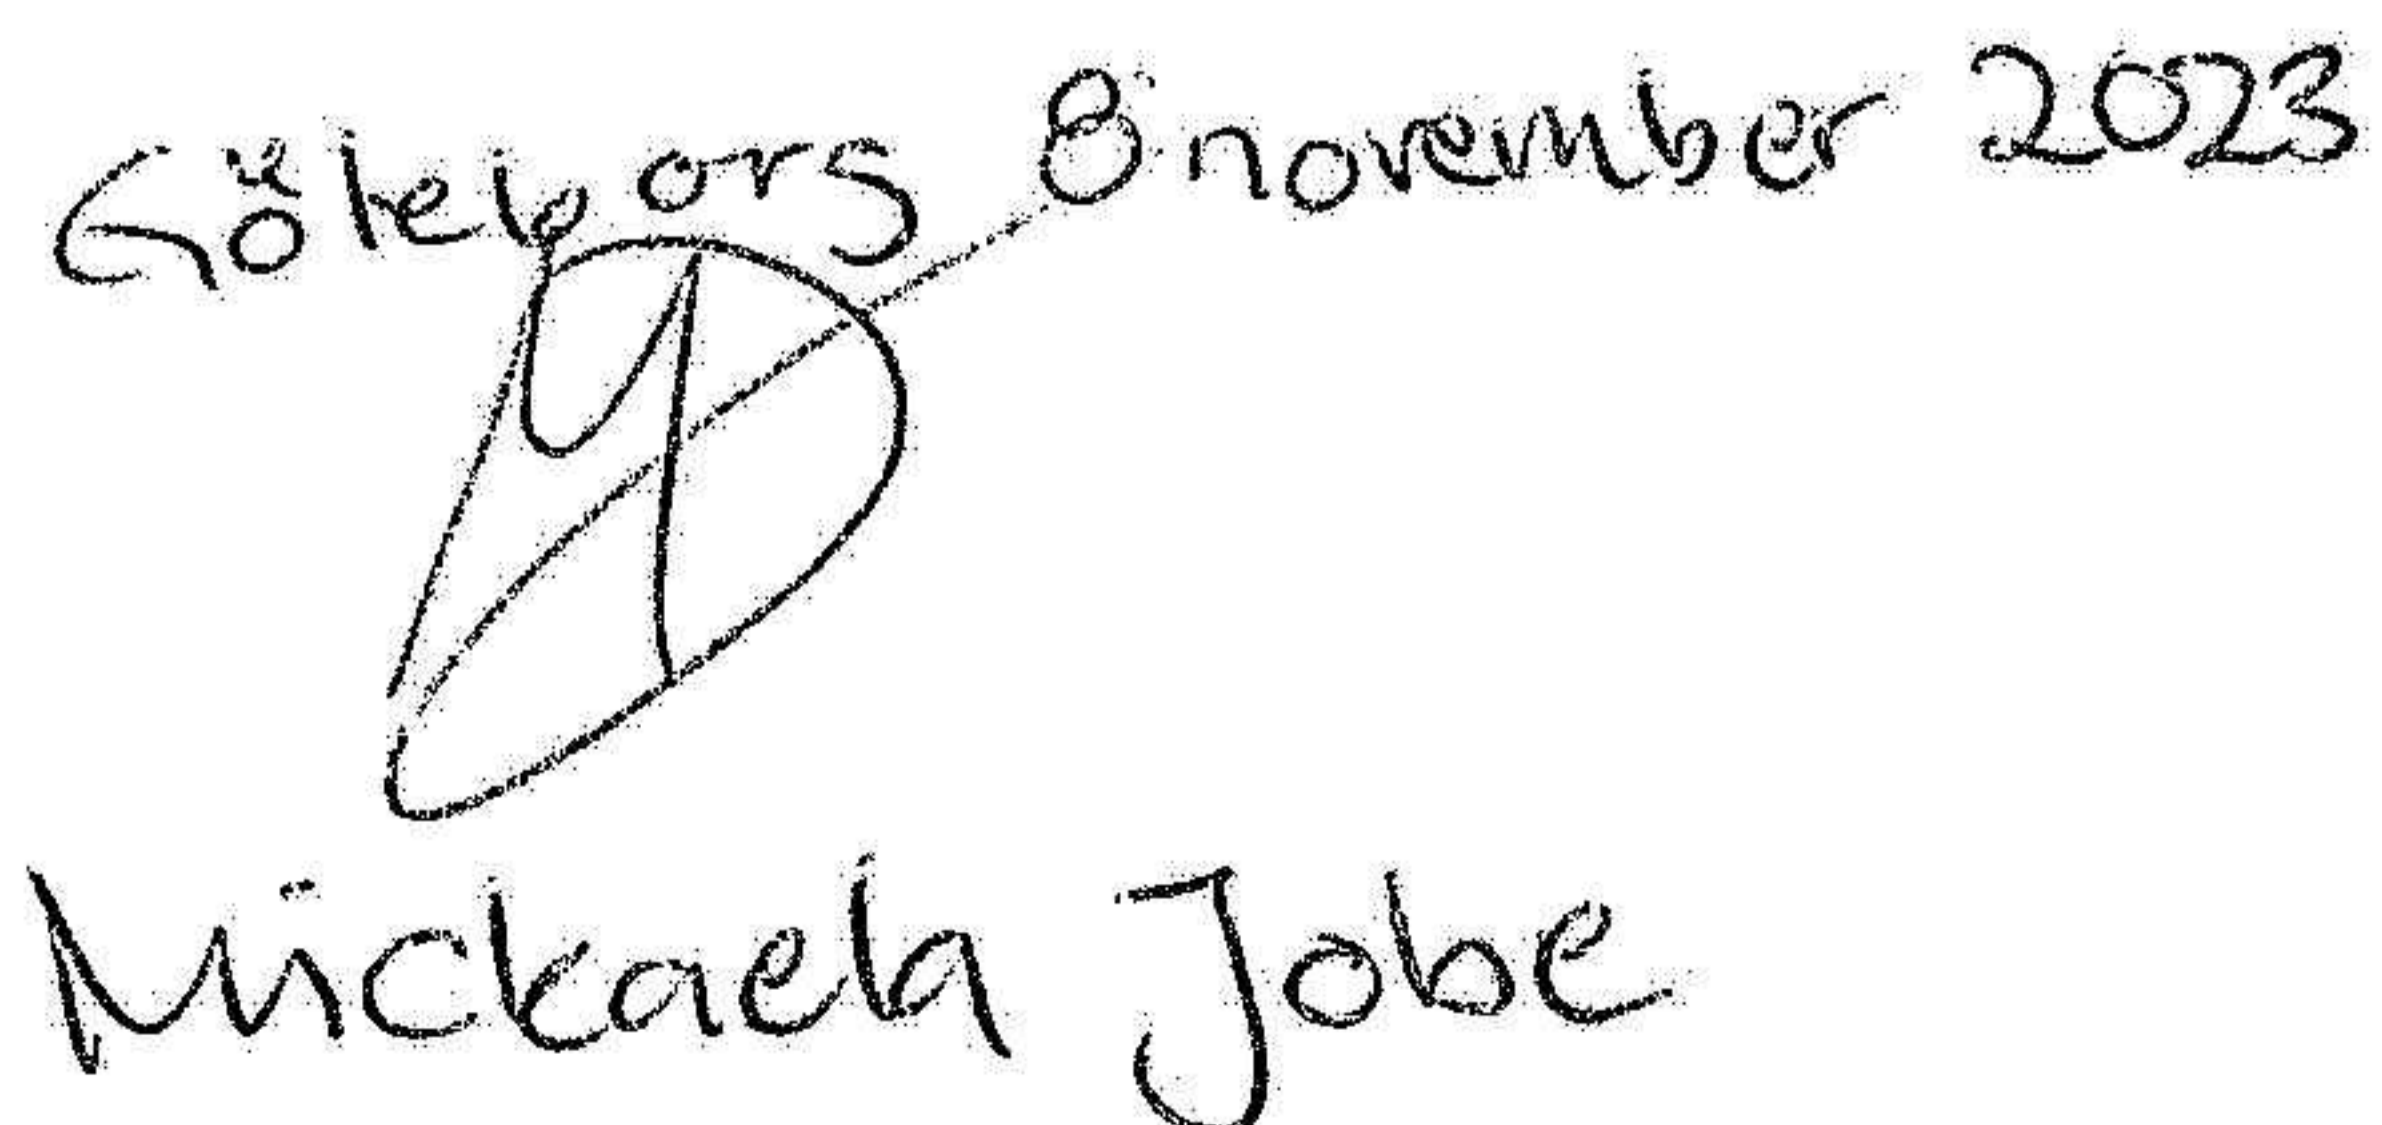 Göteborg 8 november 2023
Mickaela Jobe